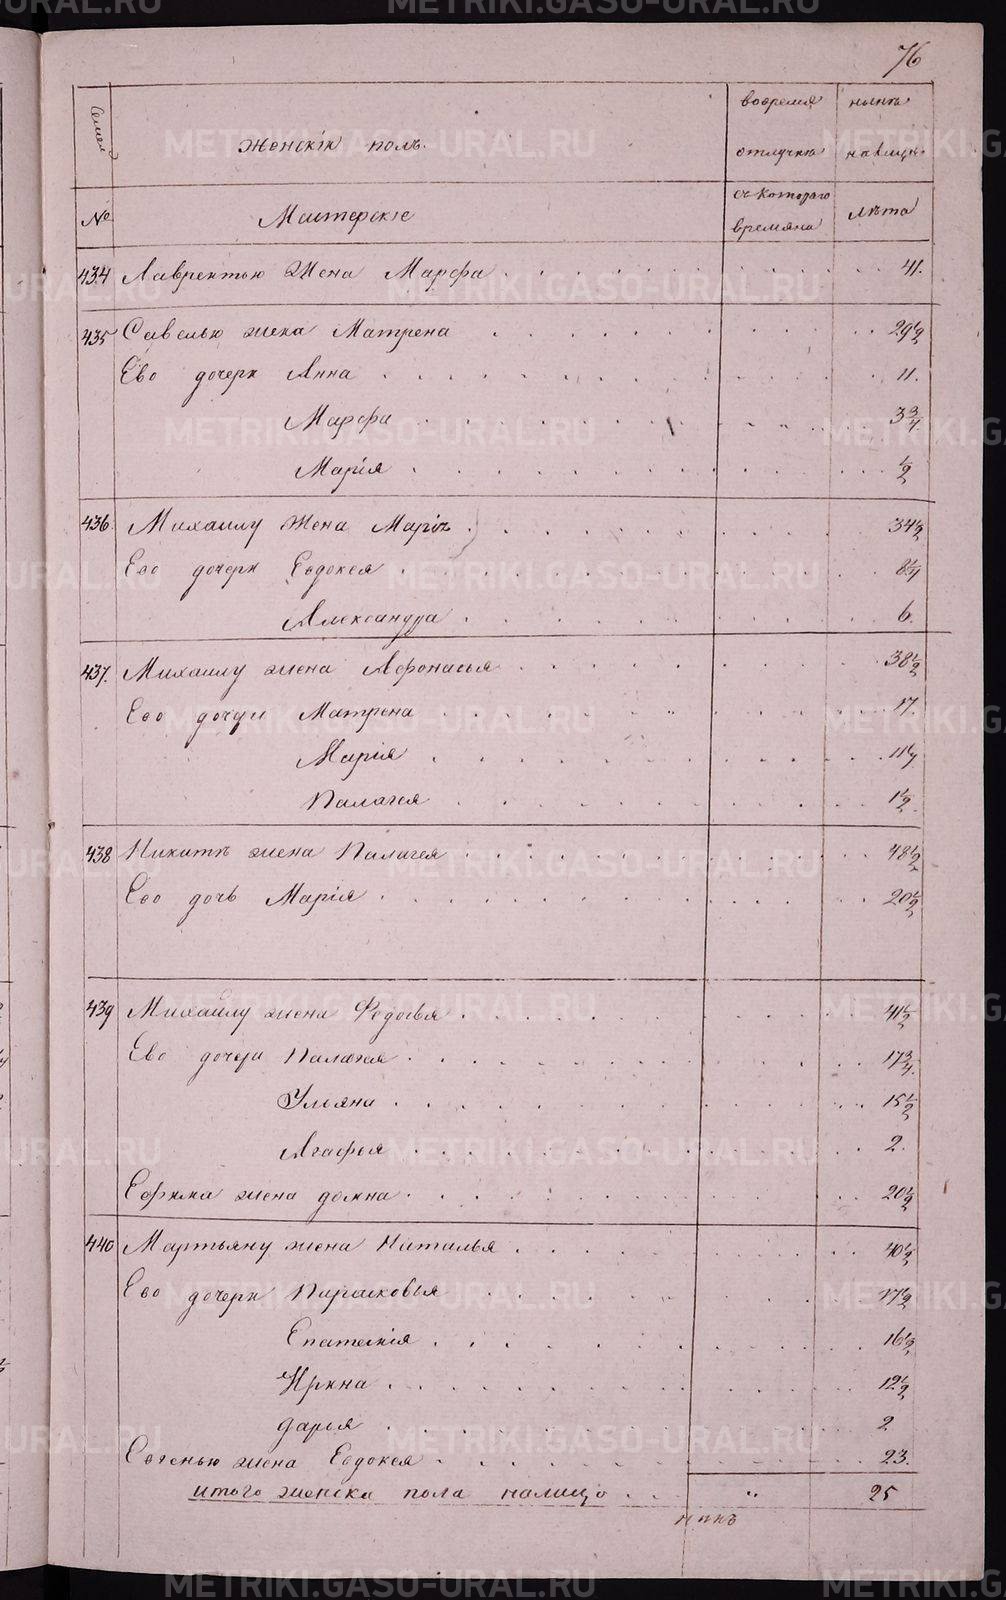 76
Семей
Женскій полъ.
вовремя
отлучкѣ
нынѣ
налицо
№
Мастерскіе
съ котораго
времяни
лѣта
434 Лаврентью Жена Марфа 41.
435 Савелью жена Матрена 29 1/2
Ево дочери Анна 11.
Марфа 3 3/4
Марія 1/2
436 Михаилу Жена Марія 34 1/2
Ево дочери Евдокея 8 1/4
Александра 6.
437. Михаилу жена Афонасья 38 1/2
Ево дочери Матрена 17
Марія 11 1/4
Палагея 1 1/2
438 Никитѣ жена Палагея 48 1/2
Ево дочь Марія 20 1/2
439 Михаилу жена Федосья 41 1/2
Ево дочери Палагея 17 3/4
Ульяна 15 1/2
Агафья 2.
Ефима жена домна 20 1/2
440 Мартьяну жена Наталья 40 1/2
Ево дочери Парасковья 17 1/2
Епатенія 16 1/2
Ирина 12 1/2
дарья 2
Евгенью жена Евдокея 23.
итого женска пола налицо " 25
METRIKI.GASO-URAL.RU